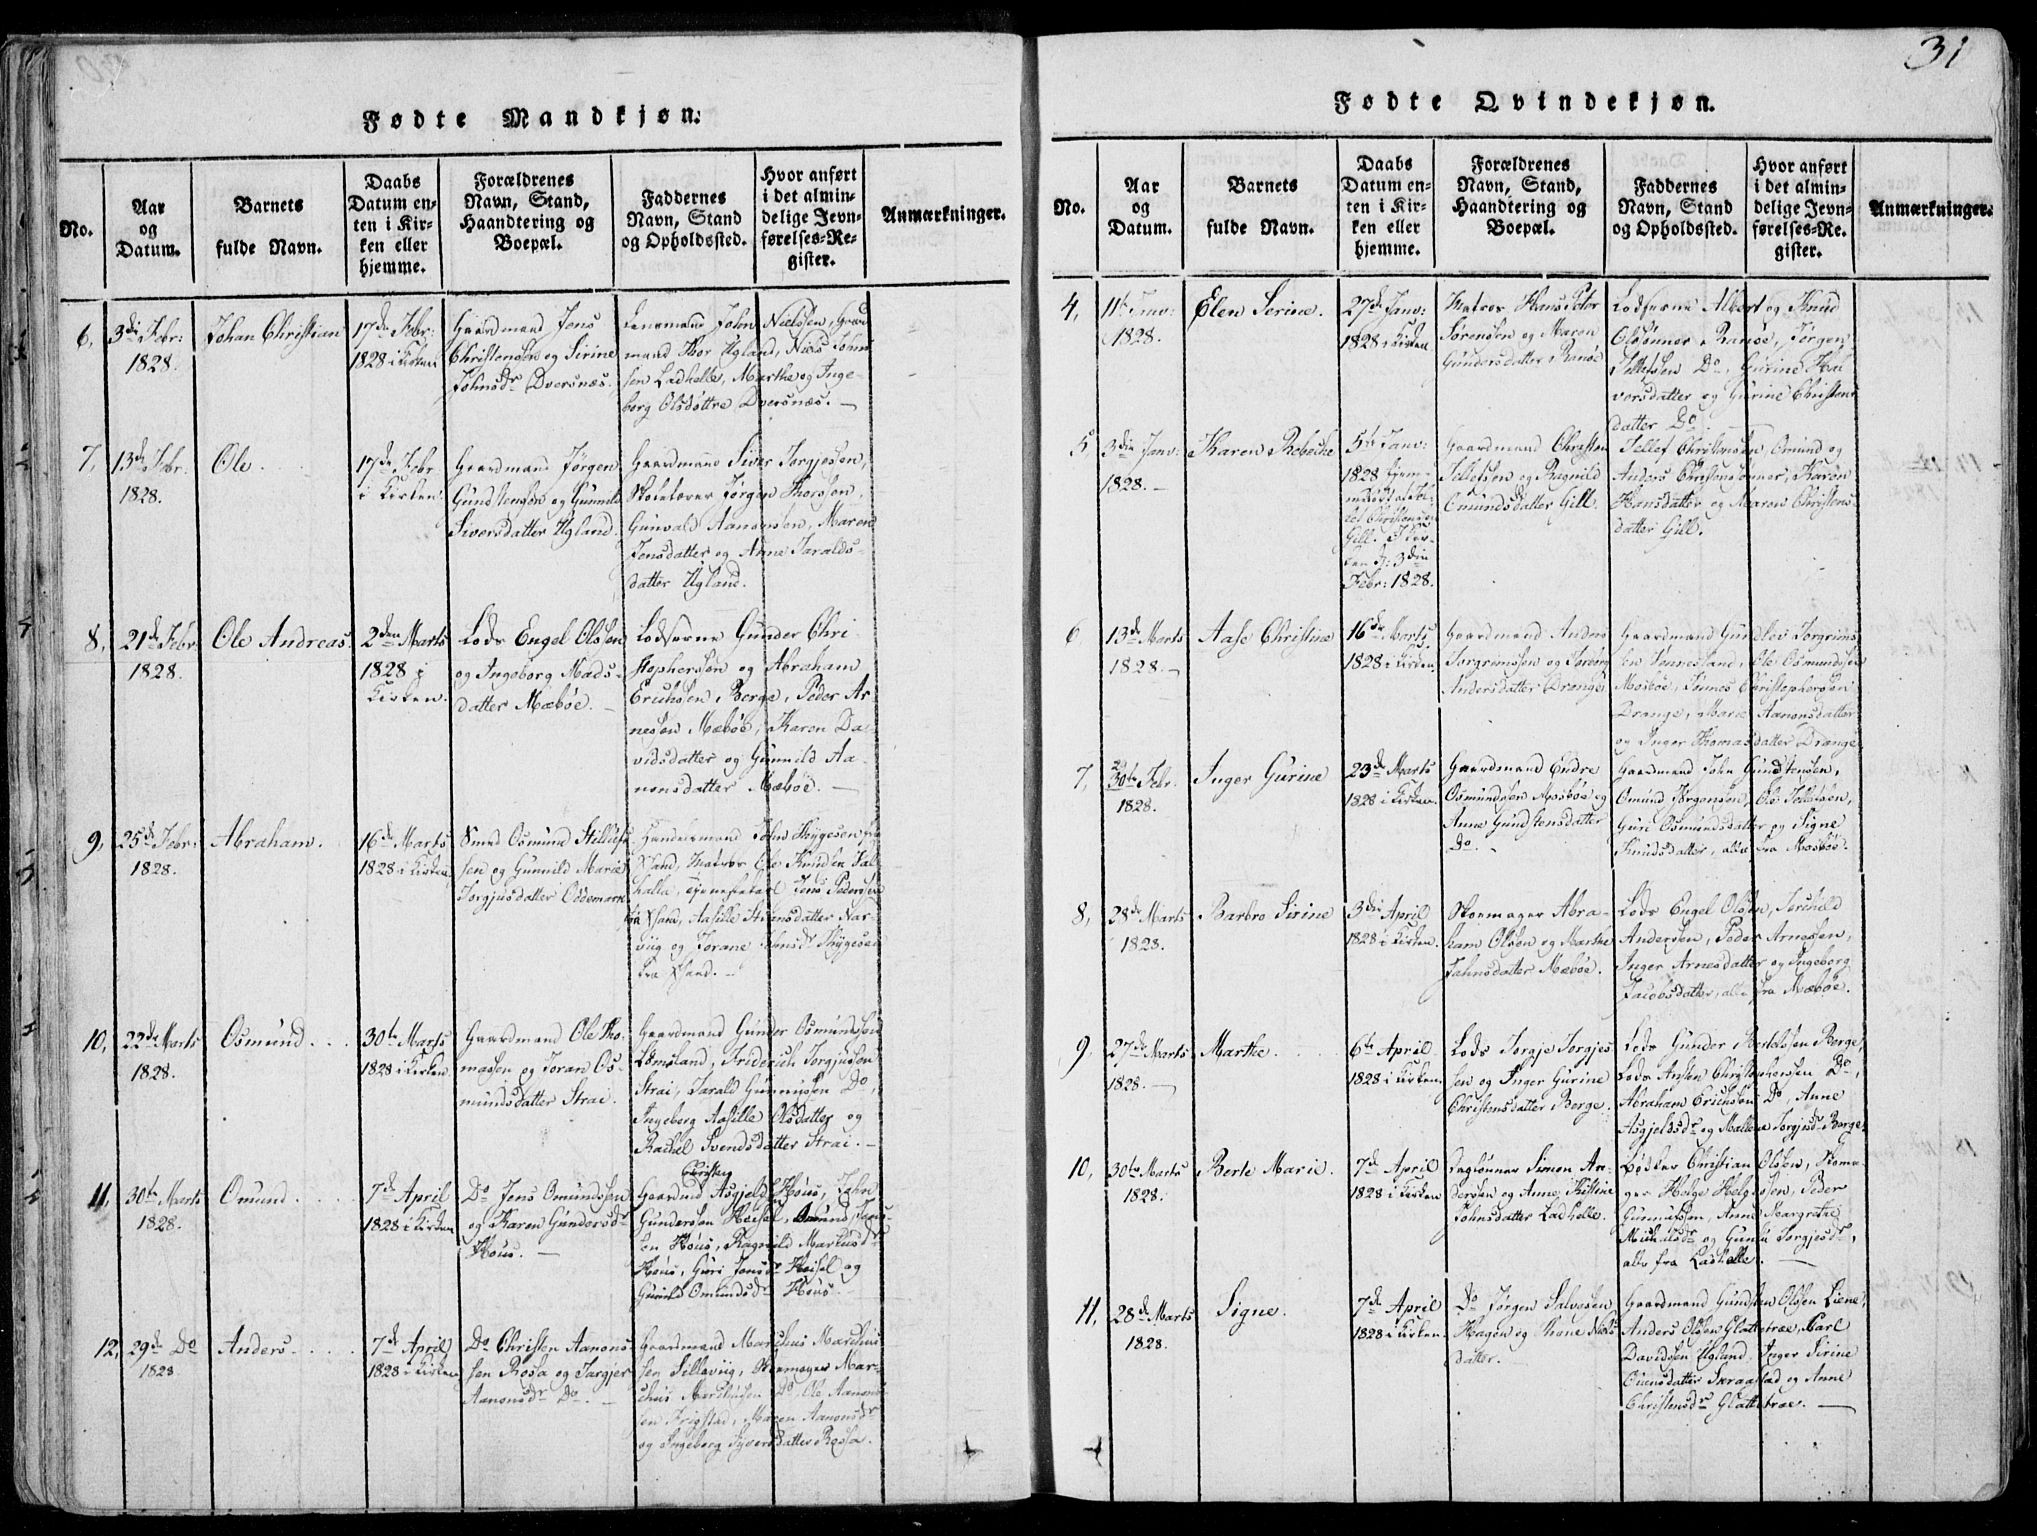 31
Fødte Mandkjøn.
No.
Aar
og
Datum.
Barnets
fulde Navn.
Daabs
Datum en-
ten i Kir-
ken eller
hjemme.
Forældrenes
Navn, Stand,
Haandtering og
Boepæl.
Faddernes
Navn, Stand
og Opholdssted.
Hvor anført
i det almin-
delige Jevn-
førelses-Re-
gister.
Anmærkninger.
6,
3die Febr:
1828.
Johan Christian
17de Febr:
1828 i Kirken
Gaardmand Jens
Christensen og Sirine
Johnsdr Dversnæs.
Lensmand John Nielsen, Gaard
mand Thor Ugland, Niels Johns
sen Ladhelle, Marthe og Inge-
borg Olsdøttre Dversnæs. —
7,
13de Febr.
1828.
Ole.
17de Febr
i Kirken
Gaardmand Jørgen
Gundstensen og Gunnild
Siversdatter Ugland.
Gaardmand Siver Torgjesen,
Skolelærer Jørgen Thorssen,
Gunvald Aanonsen, Maren
Jensdatter og Anne Taralds-
datter Ugland.
8,
21de Febr
1828.
Ole Andreas.
2den Marts
1828 i
Kirken.
Lods Engel Olssen
og Ingeborg Mads-
datter Mæbøe. —
Lodserne Gunder Chri-
stophersen og Abraham
Erichsen Berge, Peder Ar
nesen Mæbøe, Karen Da-
vidsdatter og Gunnild Aa-
nonsdatter Mæbøe. —
9,
25de Febr:
1828.
Abraham.
16de Marts
1828 i Kirken
Smed Osmund
sen og Gunnild Marie
Torgjusdatter Oddemark
Handelsmand John Thygesen fra
Xsand, Matros Ole Knudsen
Tjenestekarl Jens Pedersen
fra Xsand, Aasille datter
viig og Jorane Thygesen
fra Xsand. —
10,
22de Marts
1828.
Osmund. . .
30te Marts
1828 i Kirken
Gaardmand Ole Tho-
massen og Joran Os-
mundsdatter Strai.
Gaardmand Gunder Osmundsen
Lømsland, Friderich Torgjussen
Strai, Tarald Gunnusen Do,
Ingeborg Aasille Olsdatter og
Rachel Svendsdatter Strai. —
11,
30te Marts
1828.
Omund. . . .
7de April
1828 i Kirken
Do Jens Omundssen
og Karen Gundersdr
Høus. —
Christens
Gaardmd Asgjeld Høus, John
Gundersen Heisel, Omund Jens-
sen Høus, Ragnild Markusdr
Høus, Guri Jensdr Heisel og
Gunild Omundsdr Høus —
12,
29de Do
1828
Anders. . . .
7de April
1828 i Kirken
Do Christen Aanons-
sen Rosa og Targjer
Aanonsdr Do. —
Gaardmand Marchus Marchus-
sen Sillevig, Skomager Mar-
chus Marchusen Do, Ole Aanons
en Frigstad, Maren Aanonsdr
og Ingeborg Syversdatter Rossa.
Fødte Qvindekjøn.
No.
Aar
og
Datum.
Barnets
fulde Navn.
Daabs
Datum en-
ten i Kir-
ken eller
hjemme.
Forældrenes
Navn, Stand,
Haandtering og
Boepæl.
Faddernes
Navn, Stand
og Opholdssted.
Hvor anført
i det almin-
delige Jevn-
førelses-Re-
gister.
Anmærkninger.
4,
11te Janv:
1828.
Elen Serine.
27de Janv:
1828 i Kirken
Matros Hans Peter
Sørensen og Maren
Gundersdatter Randøe
Lodserne Albert og Knud
Olsønner Randøe, Jørgen
Tellefsen Do, Gurine Hal
vorsdatter og Gurine Christens
datter Do.
5
3die Janv:
1828. —
Karen Rebecke
5te Janv:
1828 hjem-
medøbt af Tel-
lef Christensen
Gill. I Kir-
ken d: 3die
Febr: 1828.
Gaardmand Christen
Tellefsen og Ragnild
Omundsdatter Gill.
Tellef Christensen, Omund og
Anders Christensønner, Karen
Hansdatter og Maren Christens-
datter Gill.
6
13de Marts
1828. —
Aase Christine
16de Marts
1828 i Kirken
Gaardmand Anders
Torgrimssen og Torborg
Andersdatter Drange
Gaardmand Gundlev Torgrims-
sen Tønnesland, Ole Osmundssen
Mosbøe, Tønnes Christophersen
Drange, Marie Aanonsdatter
og Inger Thomasdatter Drange
7,
30te Febr
1828.
Inger Gurine
23de Marts
1828 i Kirken.
Gaardmand Endre
Osmundsen Mosbøe og
Anne Gundstensdatter
Do. —
Gaardmand John Gundstensen,
Omund Jørgensen, Ole Tellefsen,
Guri Osmundsdatter og Signe
Knudsdatter, alle fra Mosbøe.
8,
28de Marts
1828.
Barbro Sirine
3die April
1828 i Kirken.
Skomager Abra-
ham Olsen og Marthe
Jahnsdatter Mæbøe.
Lods Engel Olsen, Terchild
Andersen, Peder Arnesen,
Inger Arnesdatter og Ingeborg
Jacobsdatter, alle fra Mæbøe.
9
27de Marts
1828. —
Marthe. . . .
6te April
1828 i Kirken
Lods Torgje Torgjes
sen og Inger Gurine
Christensdatter Berge.
Lods Gunder Berge,
Lods Ansten Christophersen Do,
Abraham Erichsen Do, Anne
Asgjeldsdr og Mallene Torgjesdr Berge
10,
30te Marts
1828.
Berte Marie.
7de April
1828 i Kirken
Daglønner Simon An-
dersen og Anne Kirstine
Johnsdatter Ladhelle.
Bødker Christian Olsen, Skoma-
ger Helge Helgesen, Peder
Gunnufssen, Anne Margrete
og Gunil Torgjesdr,
alle fra Ladhelle. —
11,
28de Marts
1828.
Signe.
7de April
1828 i Kirken.
Do Jørgen Salvesen
Hagen og Thone Niels-
datter.
Gaardmand Gunsten Olssen Liene,
Anders Olssen Glattetræe, Carl
Davidsen Ugland, Inger Sirine
Ouensdatter Skraastad og Anne
Christensdr Glattetræe. —